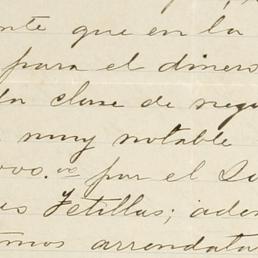 nte que en la
para el dinero
la clase de nego
muy notable
ovos. por el Su
es Tetillas; adem
mos arrendata